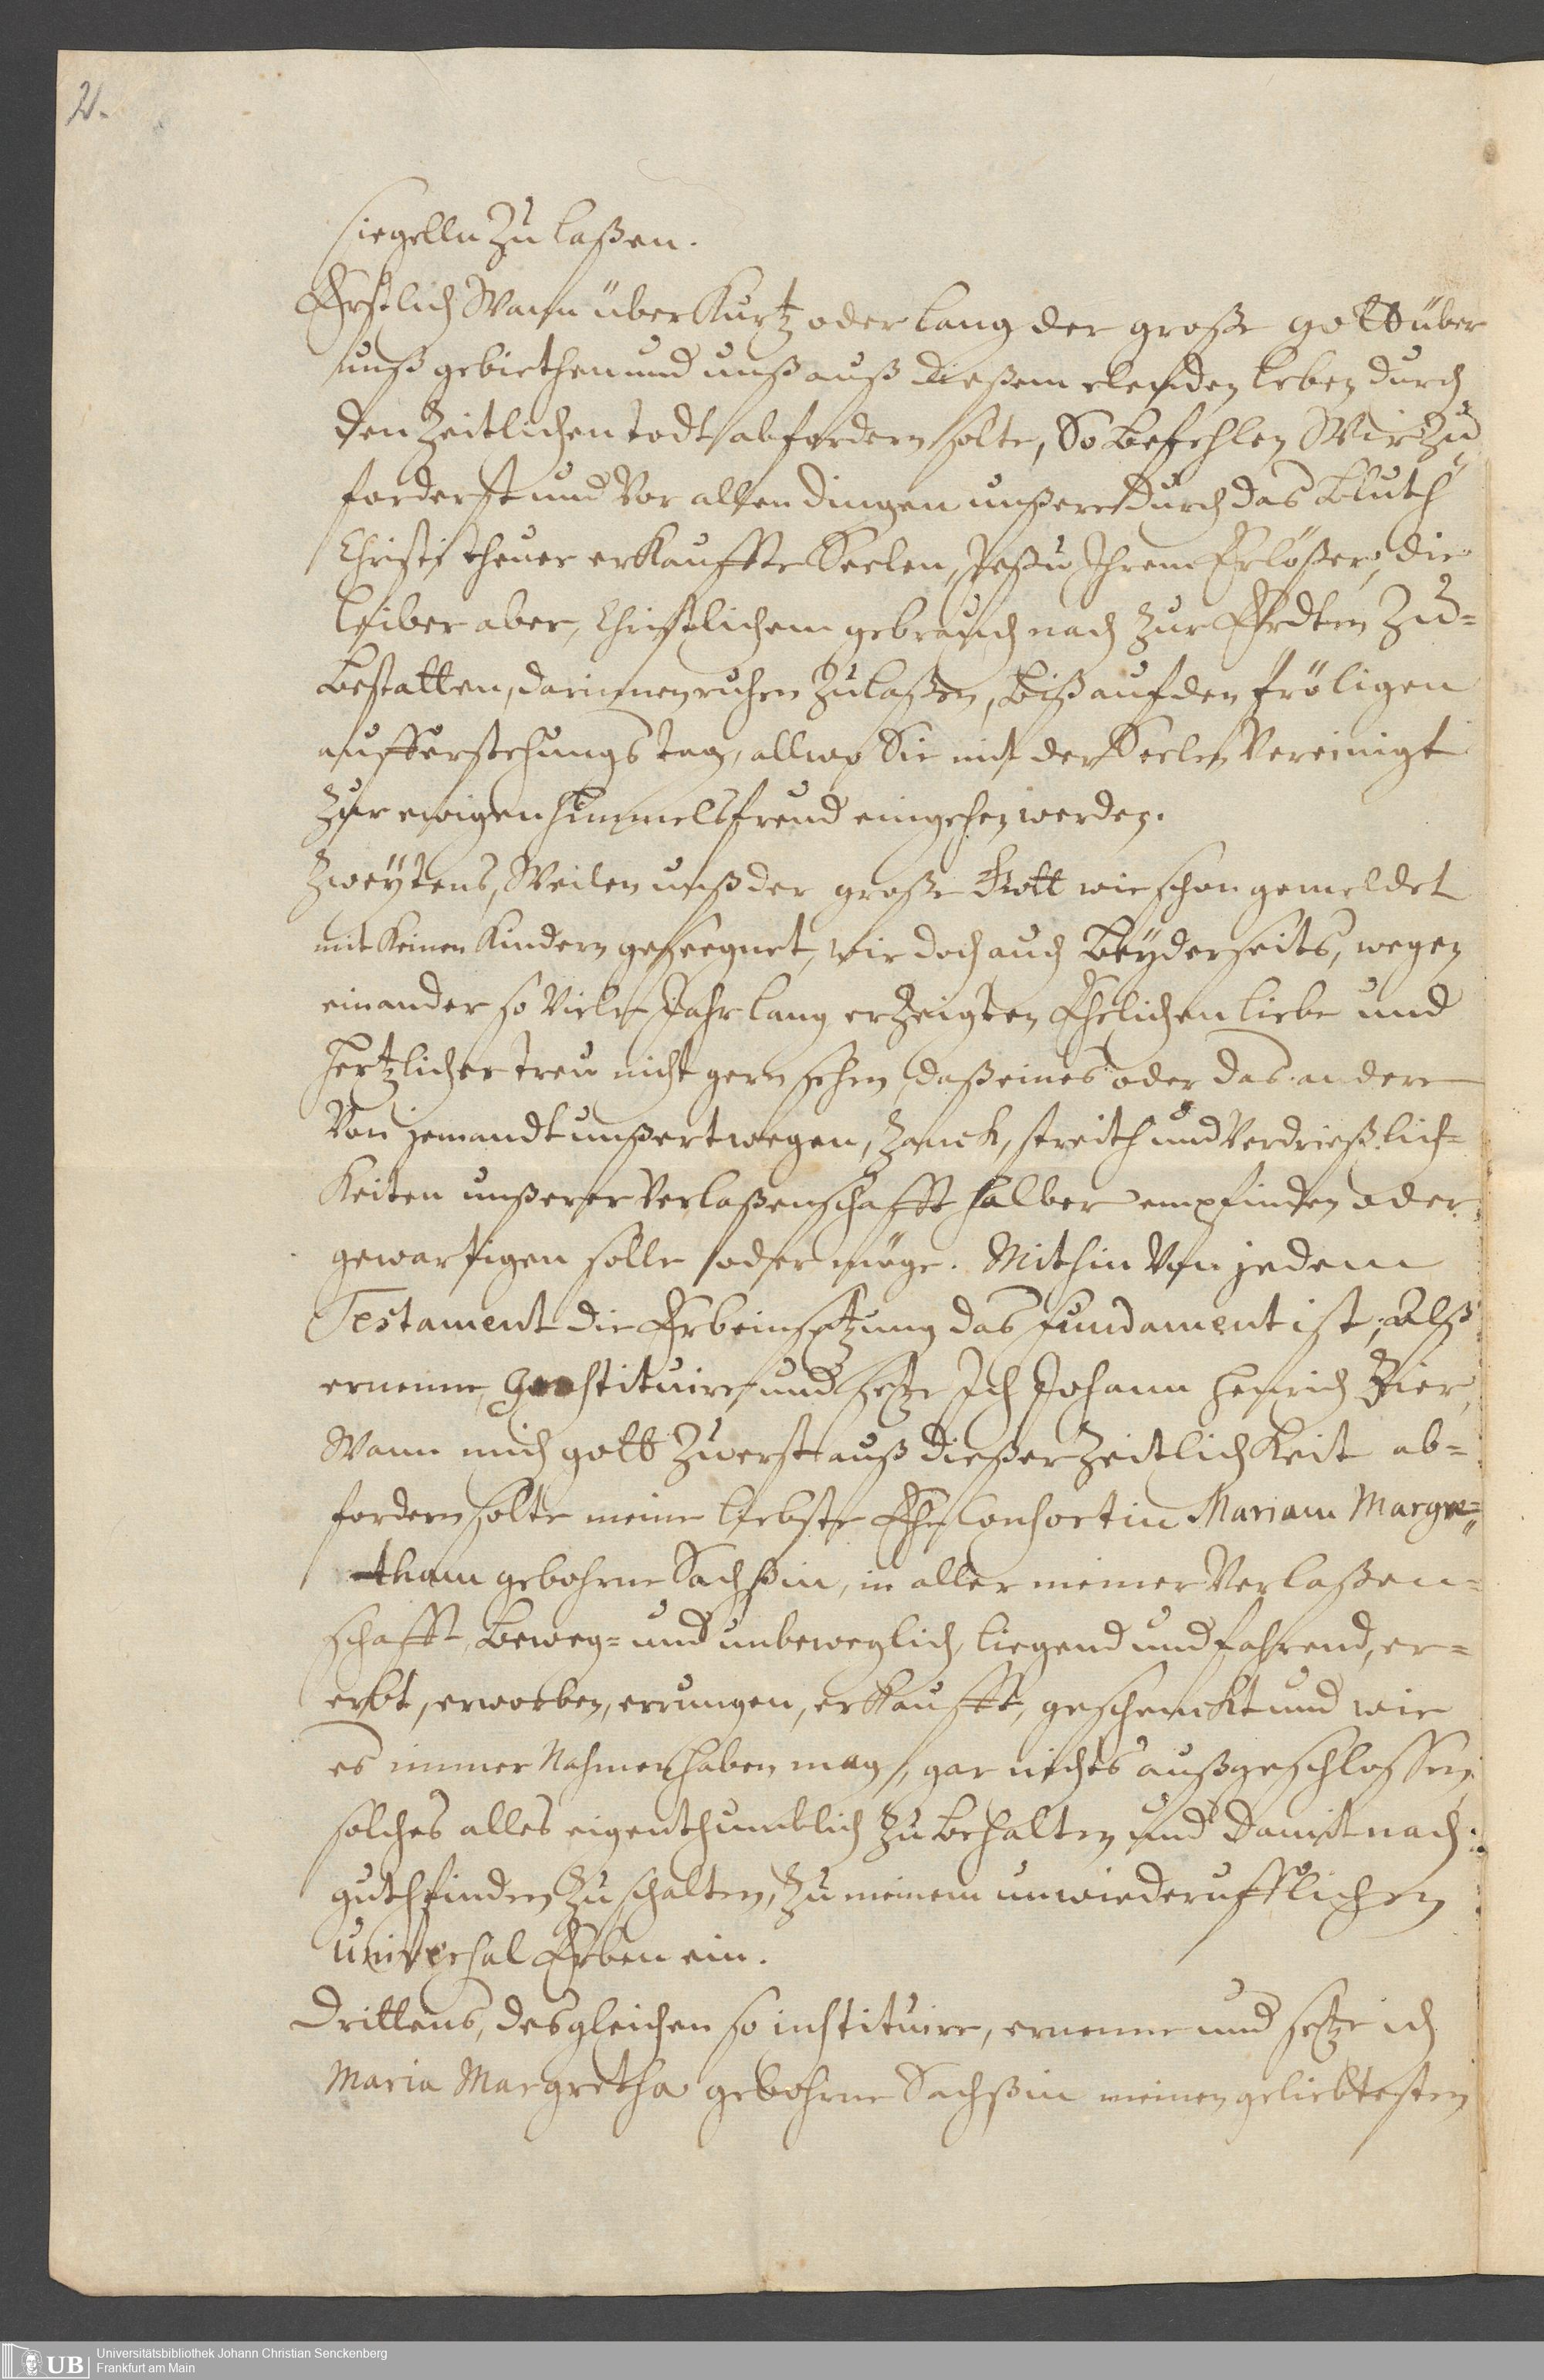 2.
siegelln Zu laßen.
Erstlich Wann über Kurtz oder lang der große gott über
unß gebiethen und unß auß dießem elenden leben durch
den Zeitlichen todt abfordern solte, So befehlen Wir Zu
forderst und Vor allen dingen unßere durch das Bluth
Christi theuer erkauffte Seelen, Jeßu Ihrem Erlößer, die
leiber aber, Christlichem gebrauch nach Zur Erdten Zu=
bestatten, darinnen ruhen Zulaßen, biß auf den fröligen
aufferstehungs tag, allwo Sie mit der Seelen Vereinigt
Zur ewigen himmelsfreud eingehen werden.
Zweÿtens, Weilen unß der große Gott wie schon gemeldet
mit keinen Kindern geseegnet, wir doch auch beÿderseits, wegen
einander so Viele Jahr lang erzeigten Ehelichen liebe und
hertzlicher treu nicht gern sehen, daß eines oder das andere
Von jemandt unßertwegen, Zanck, streith und Verdrießlich=
keiten unßerer Verlaßenschafft halber empfinden oder
gewärtigen solle oder möge. Mithin Von jedem
Testament die Erbeinsetzung das fundament ist, Alß
ernenne, constituire und setze Ich Johann Henrich Bier,
Wann mich gott Zuerst auß dießer Zeitlichkeit ab=
fordern solte meine liebste Ehe Consortin Mariam Margre=
tham gebohrne Sachßin, in aller meiner Verlaßen=
schafft, beweg= und unbeweglich, liegend und fahrend, er=
erbt, erworben, errungen, erkaufft, geschenckt und wie
es immer Nahmen haben mag, gar nichts außgeschlossen,
solches alles eigenthumblich Zu behalten und damit nach
guthfinden Zu schalten, Zu meinem unwiederufflichen
Universal Erben ein.
Drittens, desgleichen so instituire, ernenne und setze ich
Maria Margretha gebohrne Sachßin meinen geliebtesten
UB Universitätsbibliothek Johann Christian Senckenberg
Frankfurt am Main